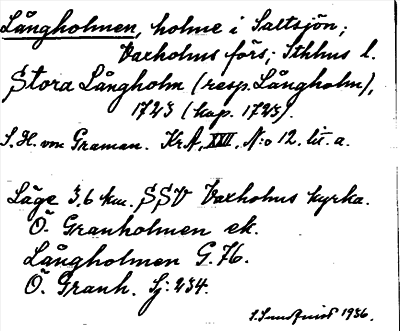 Långholmen, holme i Saltsjön;
Vaxholms förs; Sthlms l.
Stora Långholm (resp. Långholm),
1723 (kop. 1723).
S. H. von Graman. KrA, XXIII, N:o 12. lit. a.
Läge 3,6 km. SSV Vaxholms kyrka.
Ö. Granholmen ek.
Långholmen G. 76.
Ö. Granh. Sj: 234.
S. Sundquist 1936.